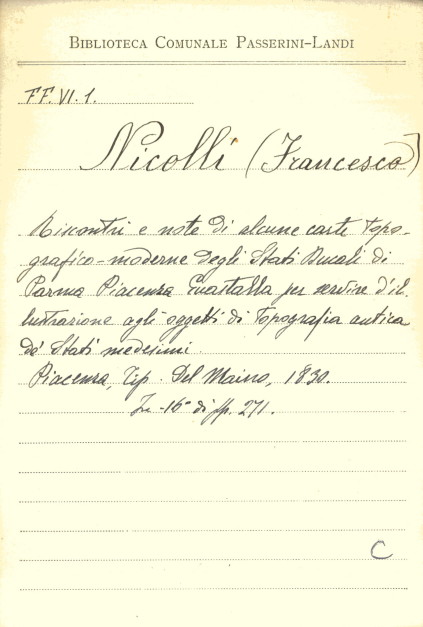 BIBLIOTECA COMUNALE PASSERINI-LANDI
FF. VI. 1.
Nicolli (Francesco)
Riscontri e note di alcune carte topo-
grafico-moderne degli Stati Ducali di
Parma Piacenza Guastalla per servire d'il-
lustrazione agli oggetti di topografia antica
de' Stati medesimi.
Piacenza, Tip. Del Maino, 1830.
In-16° di pp. 271.
C